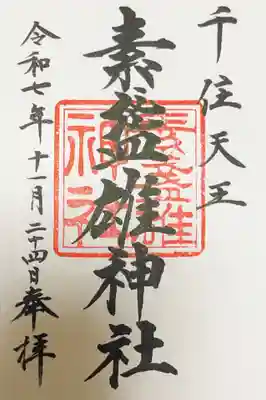 千住天王
素盞雄神社
素盞雄
神社
令和七年十一月二十四日奉拝